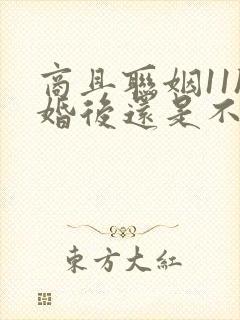 商且聯姻11
婚後還是不
東方大紅